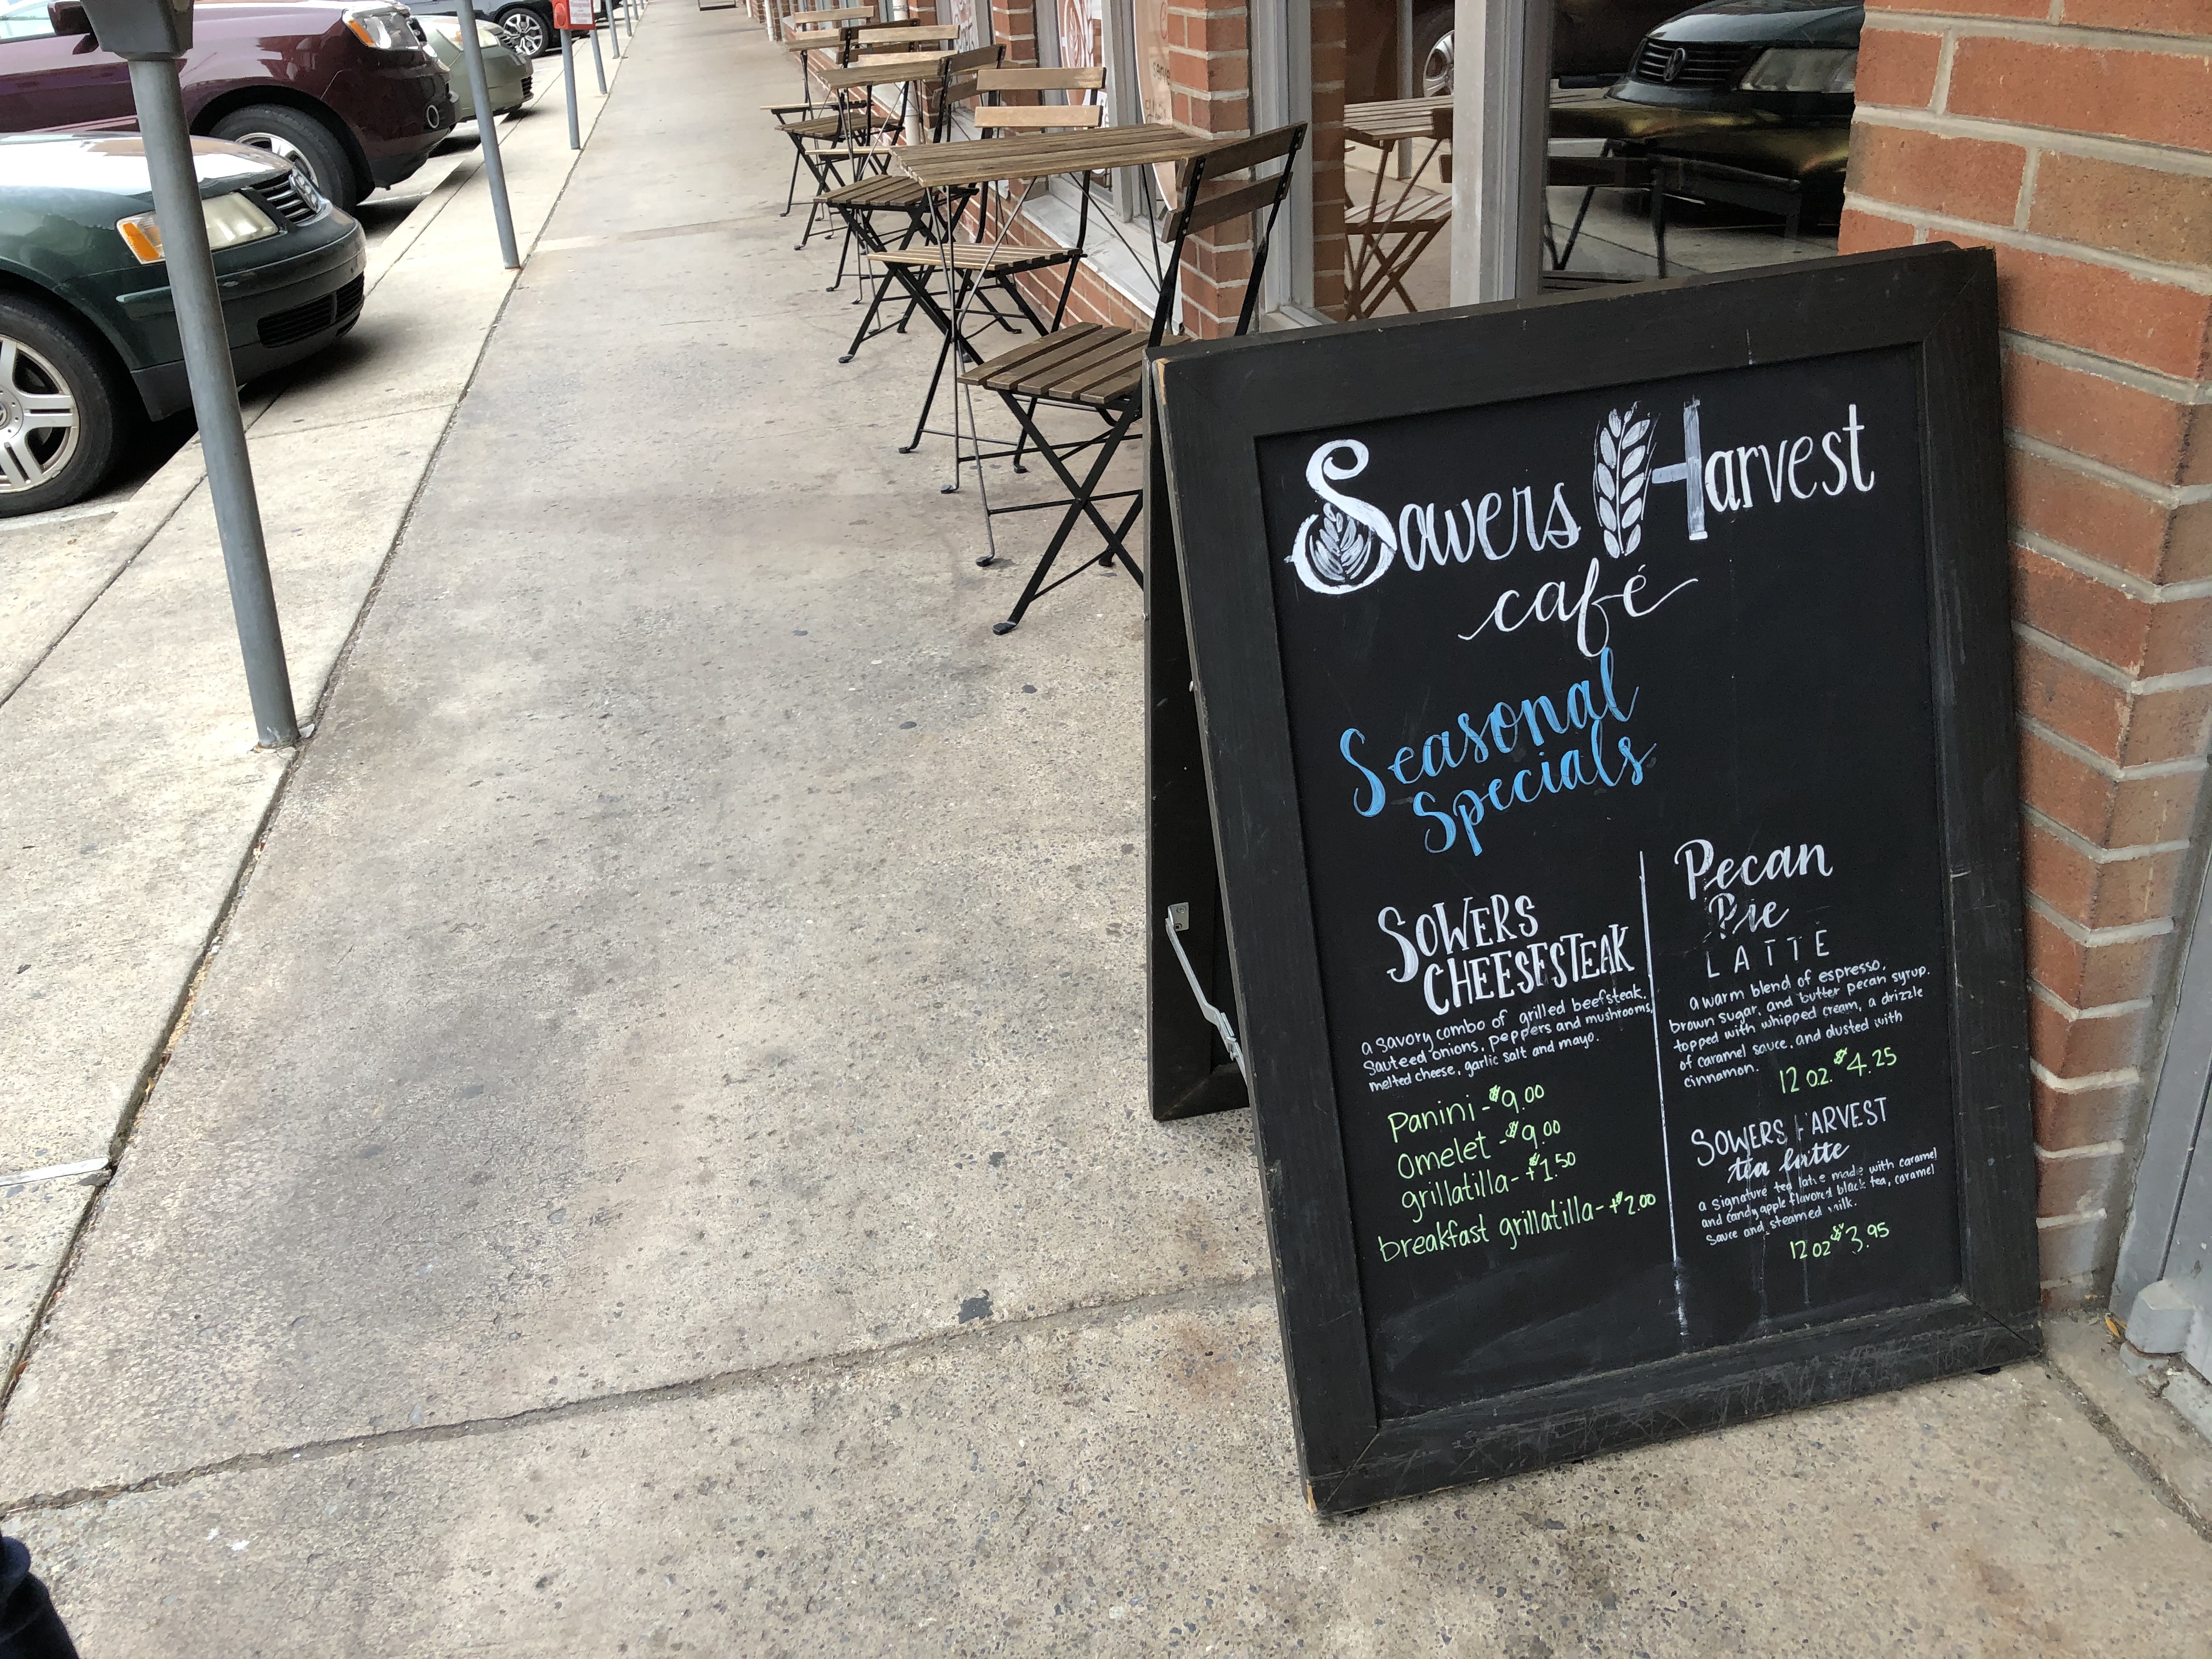 Sowers Harvest
café
Seasonal
Specials
SOWERS
CHEESESTEAK
a savory combo of grilled beefsteak,
sauteed onions, peppers and mushrooms,
melted cheese, garlic salt and mayo.
Panini - $9.00
Omelet - $9.00
grillatilla - +$1.50
breakfast grillatilla - +$2.00
Pecan
Pie
LATTE
a warm blend of espresso,
brown sugar, and butter pecan syrup.
topped with whipped cream, a drizzle
of caramel sauce, and dusted with
cinnamon.
12 oz. $4.25
SOWERS HARVEST
tea latte
a signature tea latte made with caramel
and candy apple flavored black tea, caramel
sauce and steamed milk.
12 oz $3.95